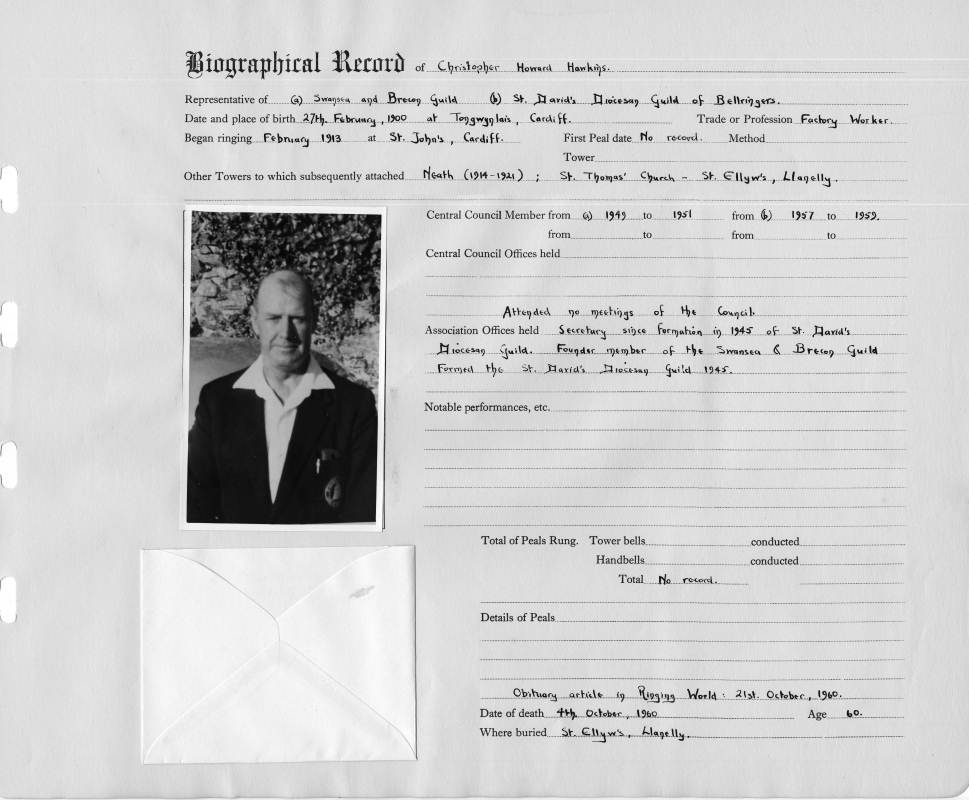 Biographical Record of Christopher Howard Hawkins.
Representative of (a) Swansea and Brecon Guild (b) St. David's Diocesan Guild of Bellringers.
Date and place of birth 27th. February, 1900 at Tongwynlais, Cardiff. Trade or Profession Factory Worker.
Began ringing February 1913 at St. John's, Cardiff. First Peal date No record. Method
Tower
Other Towers to which subsequently attached Neath (1914-1921) ; St. Thomas' Church - St. Ellyw's, Llanelly.
Central Council Member from a) 1949 to 1951 from (b) 1957 to 1959.
from to from to
Central Council Offices held
Attended no meetings of the Council.
Association Offices held Secretary since formation in 1945 of St. David's
Diocesan Guild. Founder member of the Swansea & Brecon Guild
Formed the St. David's Diocesan Guild 1945.
Notable performances, etc.
Total of Peals Rung. Tower bells conducted
Handbells conducted
Total No record.
Details of Peals
Obituary article in Ringing World : 21st. October, 1960.
Date of death 4th. October, 1960 Age 60.
Where buried St. Ellyw's, Llanelly.